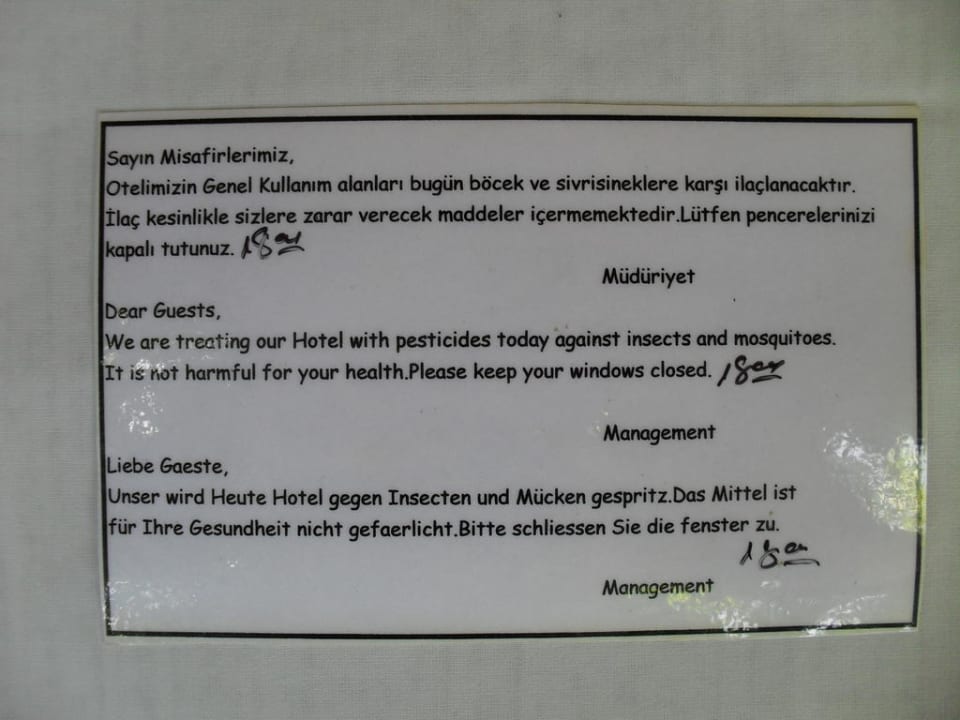 Sayın Misafirlerimiz,
Otelimizin Genel Kullanım alanları bugün böcek ve sivrisineklere karşı ilaçlanacaktır.
İlaç kesinlikle sizlere zarar verecek maddeler içermemektedir.Lütfen pencerelerinizi
kapalı tutunuz. 18⁰⁰
Müdüriyet
Dear Guests,
We are treating our Hotel with pesticides today against insects and mosquitoes.
It is not harmful for your health.Please keep your windows closed. 18⁰⁰
Management
Liebe Gaeste,
Unser wird Heute Hotel gegen Insecten und Mücken gespritz.Das Mittel ist
für Ihre Gesundheit nicht gefaerlicht.Bitte schliessen Sie die fenster zu.
18⁰⁰
Management